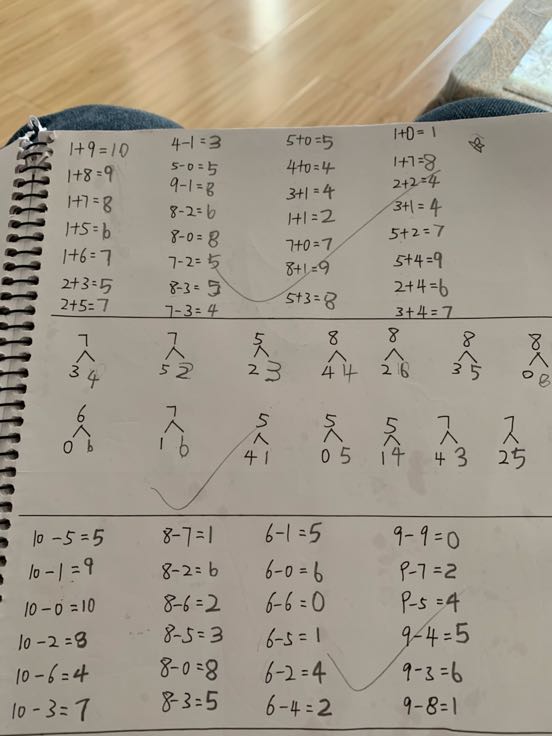 1+9=10 4-1=3 5+0=5 1+0=1
1+8=9 5-0=5 4+0=4 1+7=8
1+7=8 9-1=8 3+1=4 2+2=4
1+5=6 8-2=6 1+1=2 3+1=4
1+6=7 8-0=8 7+0=7 5+2=7
2+3=5 7-2=5 8+1=9 5+4=9
2+5=7 8-3=5 5+3=8 2+4=6
7-3=4 3+4=7
7 7 5 8 8 8 8
3 4 5 2 2 3 4 4 2 6 3 5 0 8
6 7 5 5 5 7 7
0 6 1 6 4 1 0 5 1 4 4 3 2 5
10-5=5 8-7=1 6-1=5 9-9=0
10-1=9 8-2=6 6-0=6 9-7=2
10-0=10 8-6=2 6-6=0 9-5=4
10-2=8 8-5=3 6-5=1 9-4=5
10-6=4 8-0=8 6-2=4 9-3=6
10-3=7 8-3=5 6-4=2 9-8=1